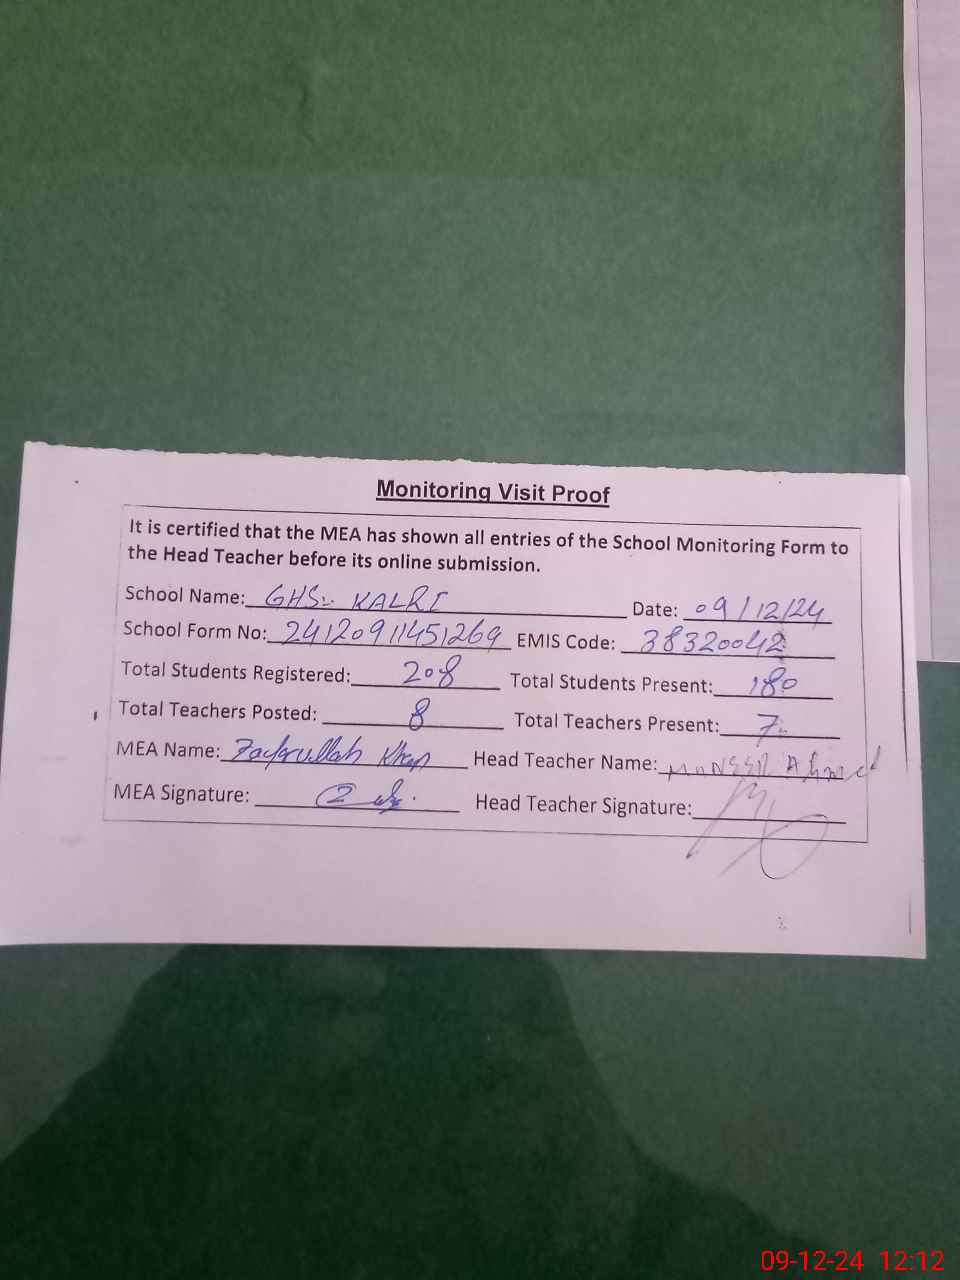 Monitoring Visit Proof
It is certified that the MEA has shown all entries of the School Monitoring Form to
the Head Teacher before its online submission.
School Name: GHS KALRI Date: 09/12/24
School Form No: 24120911451269 EMIS Code: 38320042
Total Students Registered: 208 Total Students Present: 180
Total Teachers Posted: 8 Total Teachers Present: 7
MEA Name: Zafarullah Khan Head Teacher Name: Ahmed
MEA Signature: Head Teacher Signature:
09-12-24 12:12